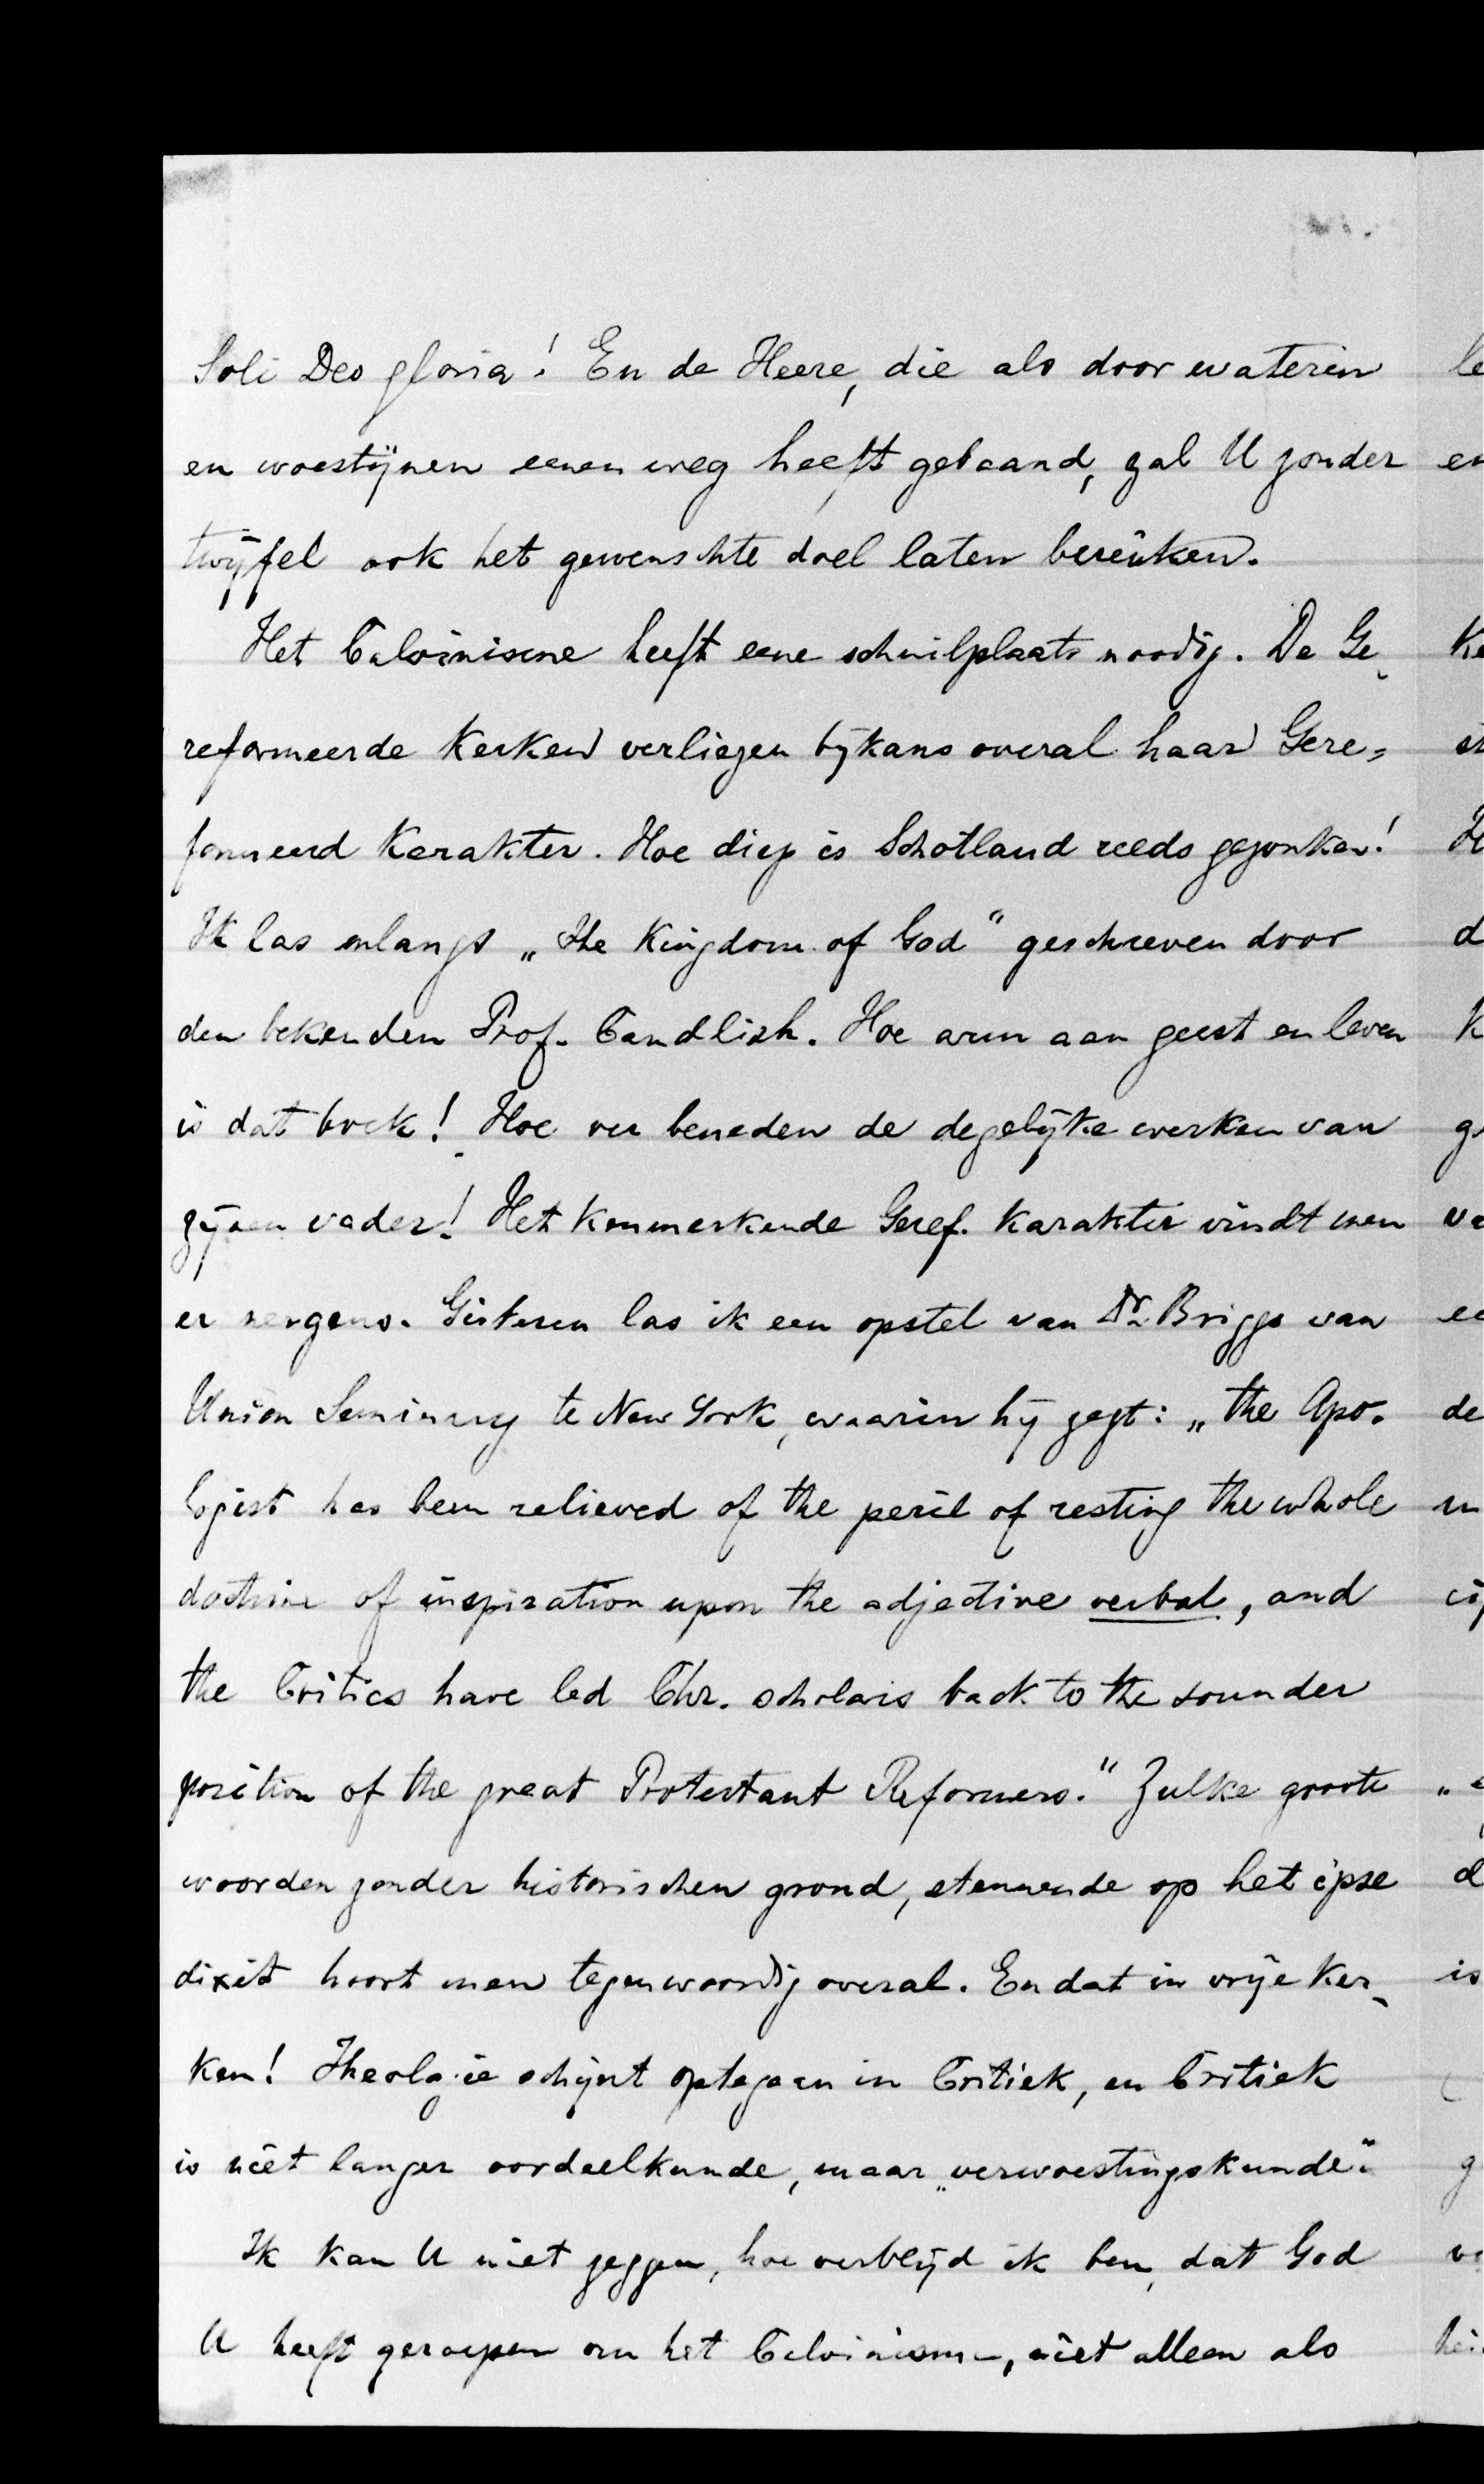 Soli Deo gloria! En de Heere, die als door wateren
en woestijnen eenen weg heeft gebaand, zal U zonder
twijfel ook het gewenschte doel laten bereiken.
Het Calvinisme heeft eene schuilplaats noodig. De Ge-
reformeerde Kerken verliezen bijkans overal haar Gere=
formeerd Karakter. Hoe diep is Schotland reeds gezonken!
Ik las onlangs „The Kingdom of God" geschreven door
den bekenden Prof. Candlish. Hoe arm aan geest en leven
is dat boek! Hoe ver beneden de degelijke werken van
zijnen vader! Het kenmerkende Geref. karakter vindt men
er nergens. Gisteren las ik een opstel van Dr. Briggs van
Union Seminary te New York, waarin hij zegt: „the Apo-
logist has been relieved of the peril of resting the whole
doctrine of inspiration upon the adjective verbal, and
the Critics have led Chr. scholars back to the sounder
position of the great Protestant Reformers." Zulke groote
woorden zonder historischen grond, steunende op het ipse
dixit hoort men tegenwoordig overal. En dat in vrije Ker-
ken! Theologie schijnt optegaan in Critiek, en Critiek
is niet langer oordeelkunde, maar „verwoestingskunde".
Ik kan U niet zeggen, hoe verblijd ik ben, dat God
U heeft geroepen om het Calvinisme, niet alleen als